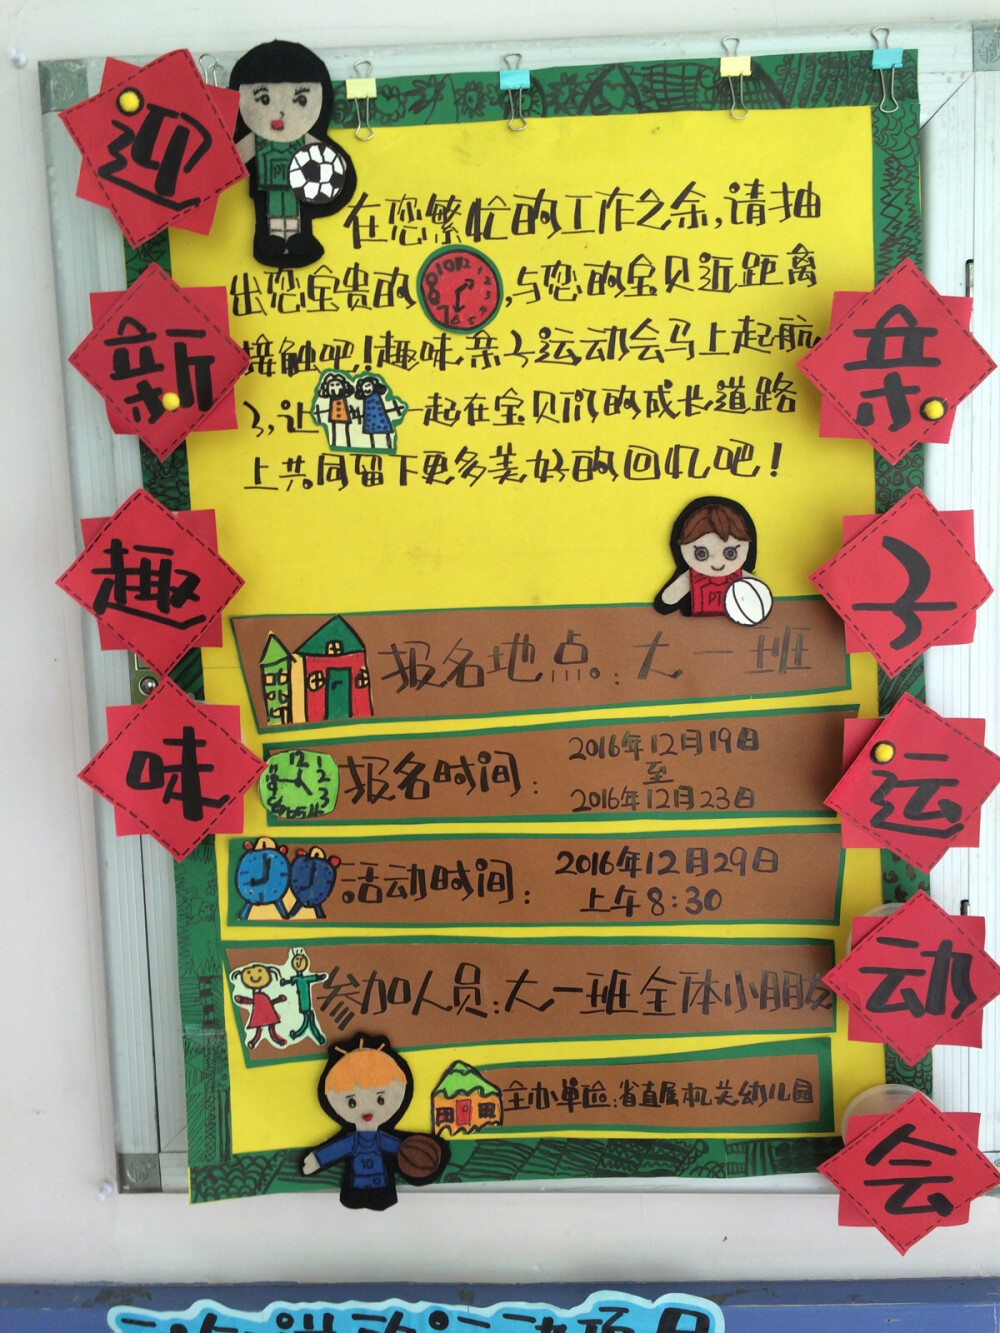 迎
新
趣
味
亲
子
运
动
会
在您繁忙的工作之余,请抽
出您宝贵的,与您的宝贝近距离
接触吧!趣味亲子运动会马上起航
了,让一起在宝贝们的成长道路
上共同留下更多美好的回忆吧!
报名地点:大一班
报名时间: 2016年12月19日
至
2016年12月23日
活动时间: 2016年12月29日
上午8:30
参加人员:大一班全体小朋友
主办单位:省直属机关幼儿园